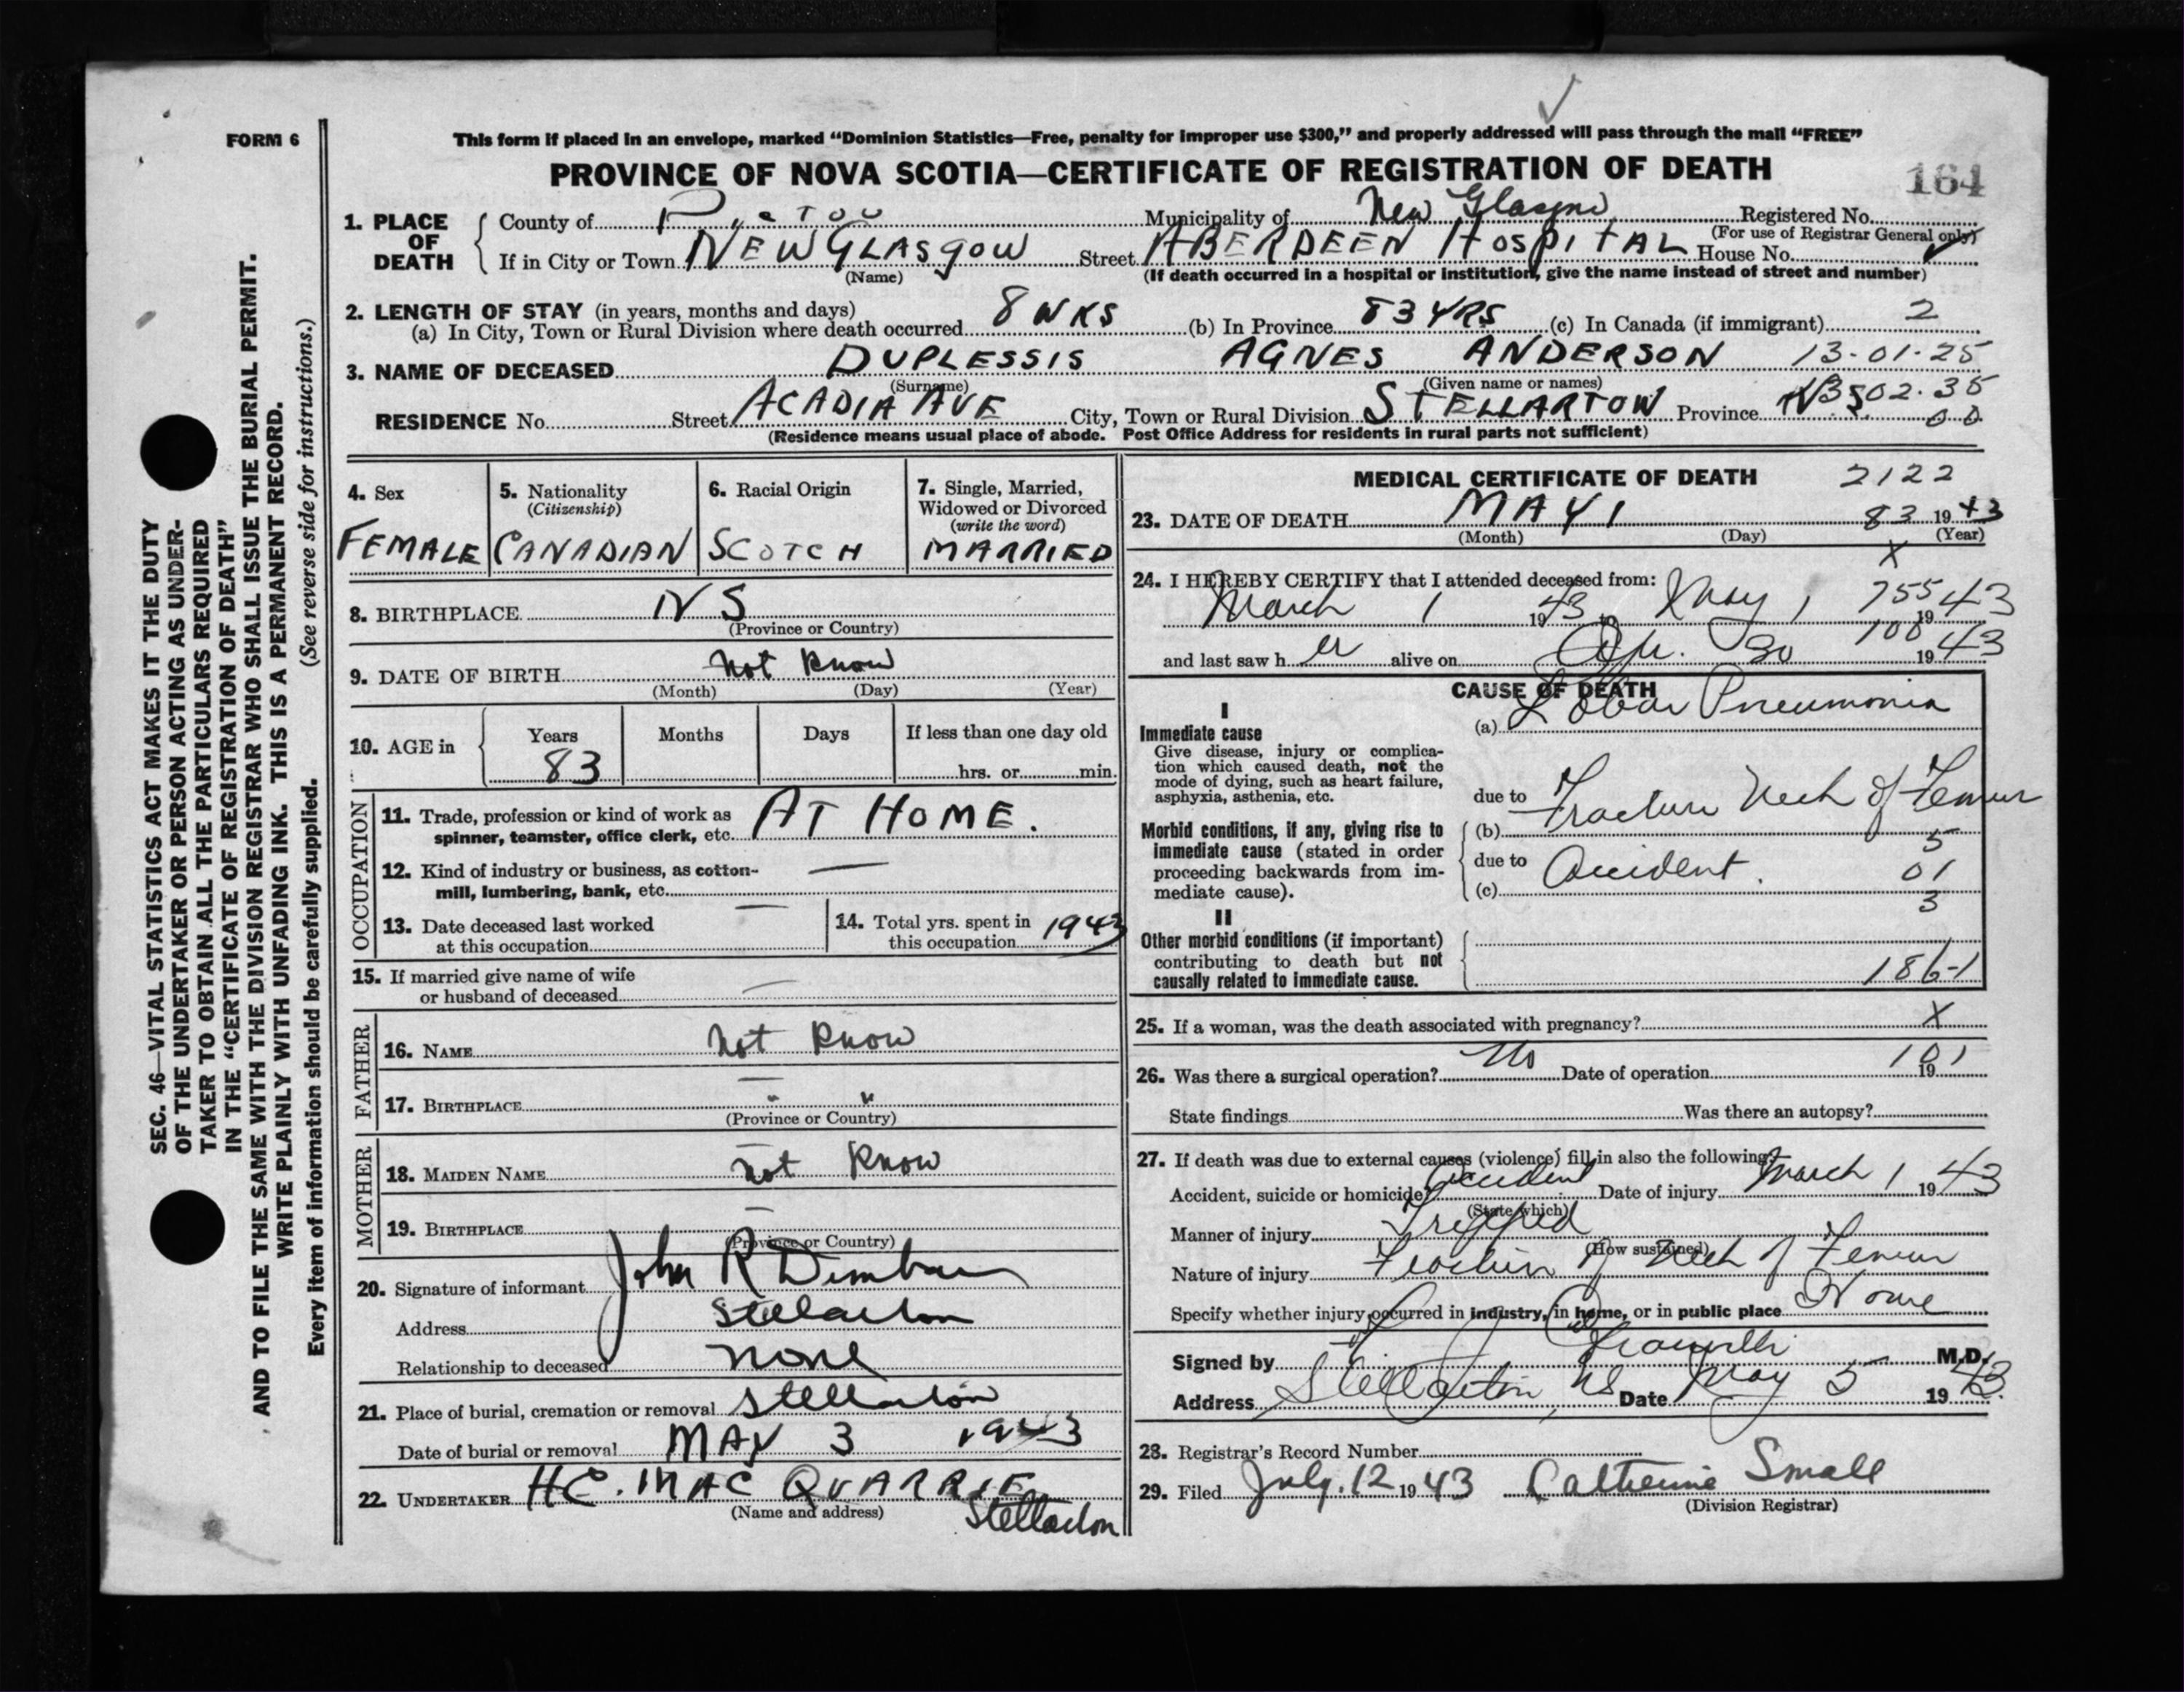 FORM 6
This form if placed in an envelope, marked "Dominion Statistics—Free, penalty for improper use $300," and properly addressed will pass through the mail "FREE"
PROVINCE OF NOVA SCOTIA—CERTIFICATE OF REGISTRATION OF DEATH
164
SEC. 46—VITAL STATISTICS ACT MAKES IT THE DUTY
OF THE UNDERTAKER OR PERSON ACTING AS UNDER-
TAKER TO OBTAIN ALL THE PARTICULARS REQUIRED
IN THE "CERTIFICATE OF REGISTRATION OF DEATH"
AND TO FILE THE SAME WITH THE DIVISION REGISTRAR WHO SHALL ISSUE THE BURIAL PERMIT.
WRITE PLAINLY WITH UNFADING INK. THIS IS A PERMANENT RECORD.
(See reverse side for instructions.)
Every item of information should be carefully supplied.
1. PLACE OF DEATH
County of Pictou Municipality of New Glasgow Registered No.
(For use of Registrar General only)
If in City or Town NEW GLASGOW Street ABERDEEN HOSPITAL House No.
(Name) (If death occurred in a hospital or institution, give the name instead of street and number)
2. LENGTH OF STAY (in years, months and days)
(a) In City, Town or Rural Division where death occurred 8 WKS (b) In Province 83 YRS (c) In Canada (if immigrant) 2
3. NAME OF DECEASED DUPLESSIS AGNES ANDERSON 13-01-25
(Surname) (Given name or names)
RESIDENCE No. Street ACADIA AVE City, Town or Rural Division STELLARTON Province NS 502.35
00
(Residence means usual place of abode. Post Office Address for residents in rural parts not sufficient)
4. Sex FEMALE
5. Nationality (Citizenship) CANADIAN
6. Racial Origin SCOTCH
7. Single, Married, Widowed or Divorced (write the word) MARRIED
8. BIRTHPLACE NS
(Province or Country)
9. DATE OF BIRTH not know
(Month) (Day) (Year)
10. AGE in Years 83 Months Days If less than one day old hrs. or min.
OCCUPATION
11. Trade, profession or kind of work as
spinner, teamster, office clerk, etc. AT HOME.
12. Kind of industry or business, as cotton-
mill, lumbering, bank, etc. —
13. Date deceased last worked
at this occupation —
14. Total yrs. spent in
this occupation 1943
15. If married give name of wife
or husband of deceased —
FATHER
16. NAME not know
17. BIRTHPLACE — " "
(Province or Country)
MOTHER
18. MAIDEN NAME not know
19. BIRTHPLACE —
(Province or Country)
20. Signature of informant John R
Address Stellarton
Relationship to deceased none
21. Place of burial, cremation or removal Stellarton
Date of burial or removal MAY 3 1943
22. UNDERTAKER HC. MAC QUARRIE
(Name and address) Stellarton
MEDICAL CERTIFICATE OF DEATH 2122
23. DATE OF DEATH MAY 1 83 1943
(Month) (Day) (Year)
X
24. I HEREBY CERTIFY that I attended deceased from:
March 1 1943 to May 1 755 1943
and last saw her alive on Apr. 30 100 1943
CAUSE OF DEATH
I
Immediate cause
Give disease, injury or complica-
tion which caused death, not the
mode of dying, such as heart failure,
asphyxia, asthenia, etc.
(a) Lobar Pneumonia
due to
Morbid conditions, if any, giving rise to
immediate cause (stated in order
proceeding backwards from im-
mediate cause).
(b) Fracture Neck of Femur
5
due to
(c) Accident. 01
3
II
Other morbid conditions (if important)
contributing to death but not
causally related to immediate cause.
186-1
25. If a woman, was the death associated with pregnancy? X
26. Was there a surgical operation? No Date of operation 19 101
State findings Was there an autopsy?
27. If death was due to external causes (violence) fill in also the following:
Accident, suicide or homicide? Accident Date of injury March 1 1943
(State which)
Manner of injury Tripped
(How sustained)
Nature of injury Fracture of Neck of Femur
Specify whether injury occurred in industry, in home, or in public place Home
Signed by M.D.
Address Stellarton, NS Date May 5 1943.
28. Registrar's Record Number
29. Filed July. 12 1943 Catherine Small
(Division Registrar)